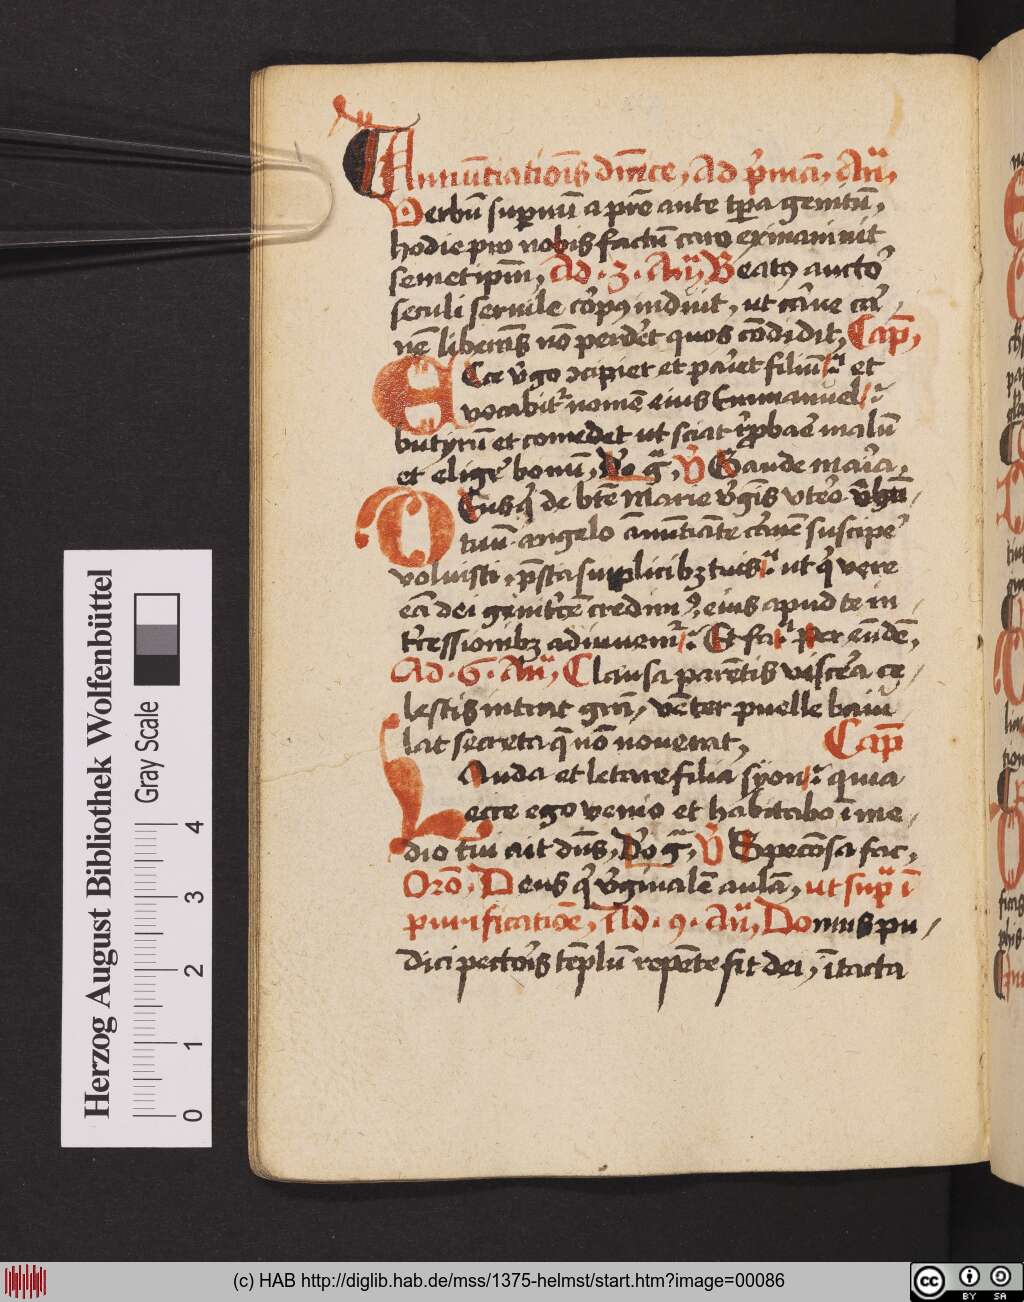 Annūtiatiōis dn̄ice, Ad p̄mā, Añ,
Verbū sup̄nū a pr̄e ante tp̄a genitū,
hodie pro nobis factū caro exinaniuit
semetip̄m, Ad · 3 · Añ, Beatꝰ aucto᷑
seculi seruile co᷑pꝰ induit, ut ca᷑ne ca᷑
nē liberās nō perde᷑t quos cōdidit, Cap̄,
Ecce v᷑go ↄcipiet et pa᷑iet filiū et
vocabit᷑ nomē eius Emmanuel
butyrū et comedet ut sciat rep̄bare malū
et elige᷑ bonū, Deo gr̄a, V᷑ Gaude maria,
Deus q᷑ de btē Marie v᷑gīs vte᷑o v᷑bū
tuū angelo ānūtiāte ca᷑nē suscipe᷑
voluisti, p̄sta supplicibꝫ tuis ut q᷑ vere
eā dei genitrīcē credimꝰ, eius apud te in
t᷑cessionibꝫ adiuuem᷑ Et fa᷑ Per eūdē,
Ad · 6 · Añ, Clausa parētis visce᷑a ce
lestis intrat gr̄a, vēter puelle baiu
lat secreta q̄ nō nouerat, Cap̄
Lauda et letare filia syon quia
ecce ego venio et habitabo ī me
dio tui ait dn̄s, Deo gr̄a, V᷑ Specōsa fac,
Orō, Deus q᷑ v᷑ginalē aulā, ut sup᷑ ī
purificatiōe, Ad · 9 · Añ, Domus pu
dici pecto᷑is tēplū repēte fit dei, ītacta
Herzog August Bibliothek Wolfenbüttel
Gray Scale
0 1 2 3 4
(c) HAB http://diglib.hab.de/mss/1375-helmst/start.htm?image=00086
cc BY SA